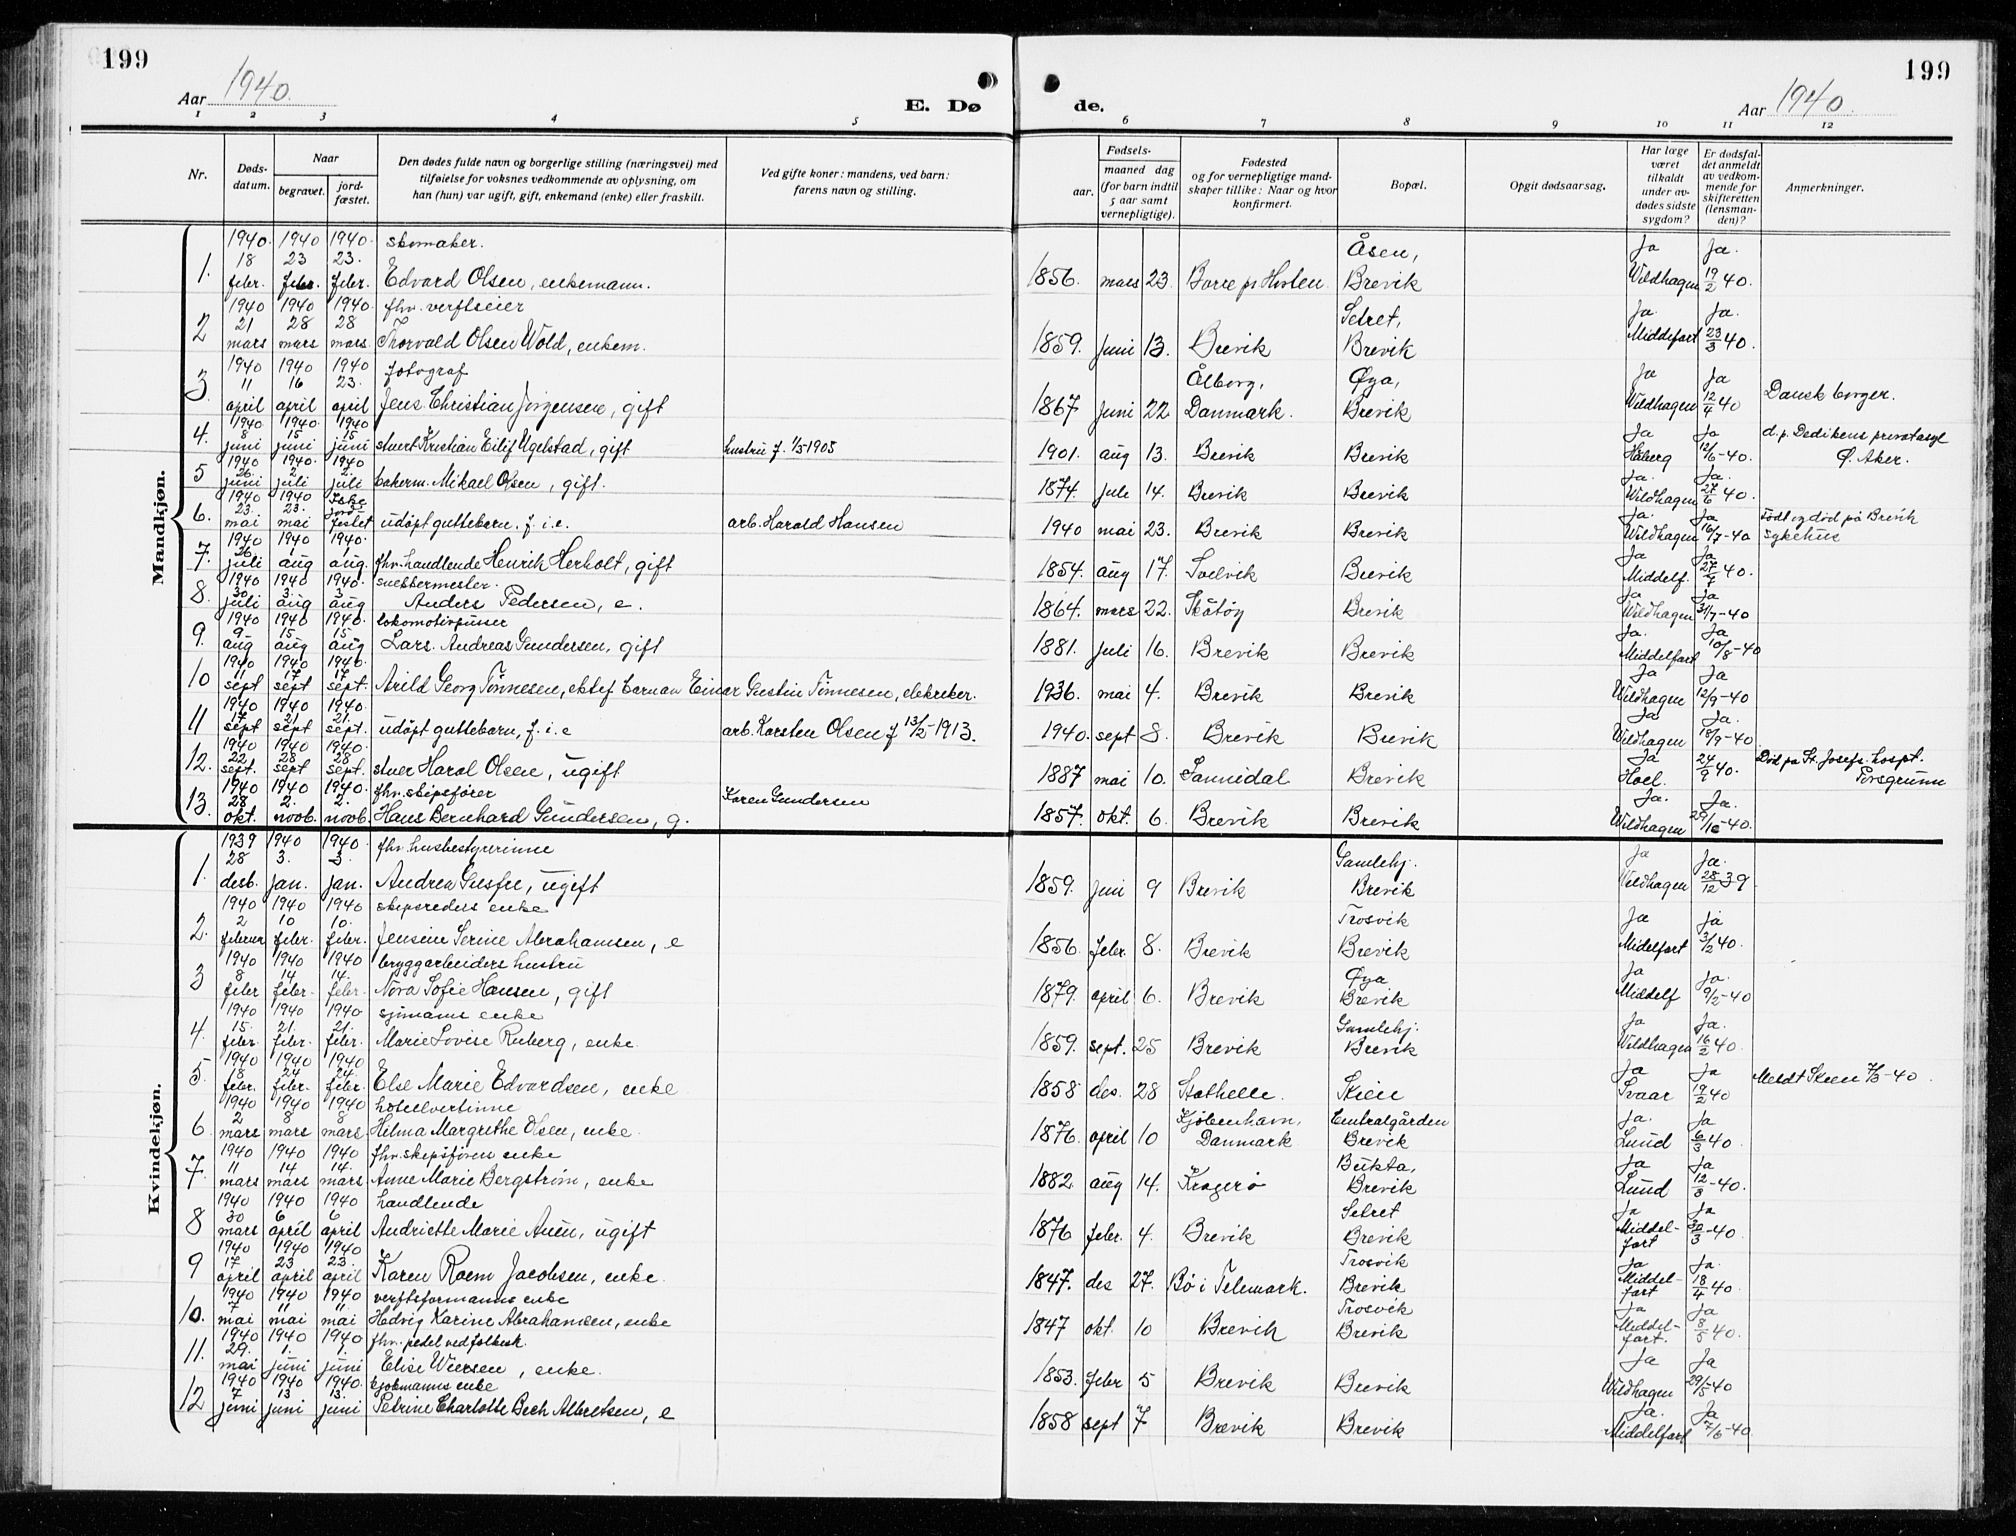 199
199
Aar 1940.
E. Dø
de.
Aar 1940.
1 2 3 4 5 6 7 8 9 10 11 12
Nr.
Døds-datum.
Naar
begravet.
jord-fæstet.
Den dødes fulde navn og borgerlige stilling (næringsvei) med
tilføielse for voksnes vedkommende av oplysning, om
han (hun) var ugift, gift, enkemand (enke) eller fraskilt.
Ved gifte koner: mandens, ved barn:
farens navn og stilling.
Fødsels-
aar.
maaned dag
(for barn indtil
5 aar samt
vernepligtige).
Fødested
og for vernepligtige mand-
skaper tillike: Naar og hvor
konfirmert.
Bopæl.
Opgit dødsaarsag.
Har læge
været
tilkaldt
under av-
dødes sidste
sygdom?
Er dødsfal-
det anmeldt
av vedkom-
mende for
skifteretten
(lensman-
den)?
Anmerkninger.
Mandkjøn.
1940. 1940 1940. skomaker. Åsen, Ja Ja.
1. 18 febr. 23 febr. 23. febr. Edvard Olsen, enkemann. 1856. mars 23. Borre pr Horten Brevik Wildhagen 19/2 40.
1940 1940 1940. fhv. verftseier Setret, Ja. Ja.
2 21 mars 28 mars 28 mars. Thorvald Olsen Wold, enkem. 1859. juni 13. Brevik Brevik Middefart 23/3 40.
1940 1940 1940 fotograf Ålborg, Øya, Ja Ja
3. 11 april 16 april 23. april Jens Christian Jørgensen, gift 1867 juni 22 Danmark. Brevik Wildhagen 12/4 40 Dansk borger.
1940 1940. 1940 Ja Ja d. p. Dedikens privatasyl
4. 8 juni 15 juni 15 juni stuert Kristian Eilif Ugelstad, gift hustru f. 1/3 1905 1901. aug 13. Brevik Brevik Håberg 12/6-40. Ø. Aker.
1940 1940. 1940 Ja. Ja.
5 26. juni 2 juli 2. juli bakerm. Mikael Olsen, gift. 1874. juli 14. Brevik Brevik Wildhagen 27/6 40.
1940 1940 Ikke Ja. Ja Født og død på Brevik
6. 23. mai 23. mai jord-festet udøpt guttebarn, f. i. e. arb. Harald Hansen 1940 mai 23. Brevik Brevik Wildhagen 16/7-40 sykehus
1940 1940 1940. Ja Ja
7. 26. juli 1 aug 1 aug. fhv. handlende Henrik Herholt, gift 1854. aug 17. Svelvik Brevik Middelf. 27/7 40.
1940 1940 1940. snekkermester. Ja Ja
8. 30 juli 3. aug 3 aug Anders Pedersen, e. 1864. mars 22. Skåtøy Brevik Wildhagen 31/7-40
1940 1940 1940. lokomotivpusser Ja. Ja
9. 9- aug 15 aug 15 aug Lars Andreas Gundersen, gift 1881. juli 16. Brevik Brevik Middelfart 10/8-40
1940 1940 1940. Ja Ja
10 11 sept 17 sept 17 sept. Arild Georg Tønnesen, ektef barn av Einar Gustin Tønnesen, elekriker. 1936. mai 4. Brevik Brevik Wildhagen 12/9-40
1940 1940 1940. Ja Ja.
11 17 sept 21 sept 21. sept. udøpt guttebarn, f. i. e arb. Karsten Olsen f 13/2-1913. 1940. sept 8. Brevik Brevik Wildhagen 18/9-40
1940 1940 1940. Ja Død på St. Josefs. hospt.
12. 22 sept. 28 sept 28 sept. stuer Harol Olsen, ugift 1887 mai 10. Sannidal Brevik Hoel. 24/9 40. Porsgrunn
1940 1940 1940. fhv. skipsfører Ja. Ja.
13. 28 okt. 2. novb. 2. novb. Hans Bernhard Gundersen, g. Karen Gundersen 1857. okt. 6. Brevik Brevik Wildhagen 29/10-40.
Kvindekjøn.
1939 1940 1940. fhv husbestyrerinne Gamlehj. Ja Ja.
1. 28 desb. 3. jan. 3. jan. Andrea Gusfre, ugift 1859. juni 9 Brevik Brevik Wildhagen 28/12 39.
1940 1940 1940 skipsreders enke Trosvik Ja Ja
2. 2 februar 10 febr. 10. febr. Jensine Serine Abrahamsen, e 1856. febr. 8. Brevik Brevik Midelfart 3/12 40.
1940 1940 1940 bryggarbeiders hustru Øya Ja Ja.
3 8 febr 14 febr. 14. febr. Nora Sofie Hansen, gift 1879. april 6. Brevik Brevik Middelf 9/2-40
1940 1940 1940 sjømanns enke Gamlehj. Ja Ja.
4. 15. febr. 21. febr. 21. febr. Marie Lovise Ruberg, enke. 1859. sept. 25 Brevik Brevik Wildhagen 16/2 40.
1940 1940 1940 Ja Ja
5. 18 febr. 24 febr. 24. febr. Else Marie Edvardsen, enke 1858 des. 28 Stathelle. Skien Svaar 19/2 40 Meldt Skien 7/3-40
1940 1940 1940 hotellvertinne Kjøbenhavn, Centralgården Ja. Ja
6 2 mars 8 mars 8 mars. Helma Margrethe Olsen, enke. 1876. april 10 Danmark Brevik Lund 6/3 40.
1940 1940 1940 fhv. skipsførers enke Bukta, Ja Ja
7. 11 mars 14 mars 14. mars. Anne Marie Bergstrøm, enke 1882. aug 14. Kragerø Brevik Lund 12/3-40.
1940 1940 1940 handlende Setret Ja Ja
8 30 mars 6 april 6 april Andriette Marie Auen, ugift 1876 febr. 4. Brevik Brevik Middel-fart 30/3-40
1940 1940 1940 Trosvik Ja Ja
9 17 april 23 april 23. april Karen Roem Jacobsen, enke. 1847. des 27. Bø i Telemark. Brevik Middel-fart 18/4 40.
1940 1940 1940 verftsformanns enke Trosvik Ja Ja
10. 7 mai 11 mai 11 mai Hedvig Karine Abrahamsen, enke 1847 okt. 10 Brevik Brevik Middel-fart. 8/5 40.
1940 1940 1940. fhv. pedel ved folkesk. Ja Ja
11. 29. mai 1. juni 1. juni Elise Wiersen, enke. 1853. febr 5 Brevik Brevik Wildhagen 29/5-40
1940 1940 1940. kjøbmanns enke Ja. Ja
12 7 juni 13 juni 13. juni Petrine Charlotte Bech Albretsen, e 1858 sept 7 Brevik Brevik Middelfart 7/6-40